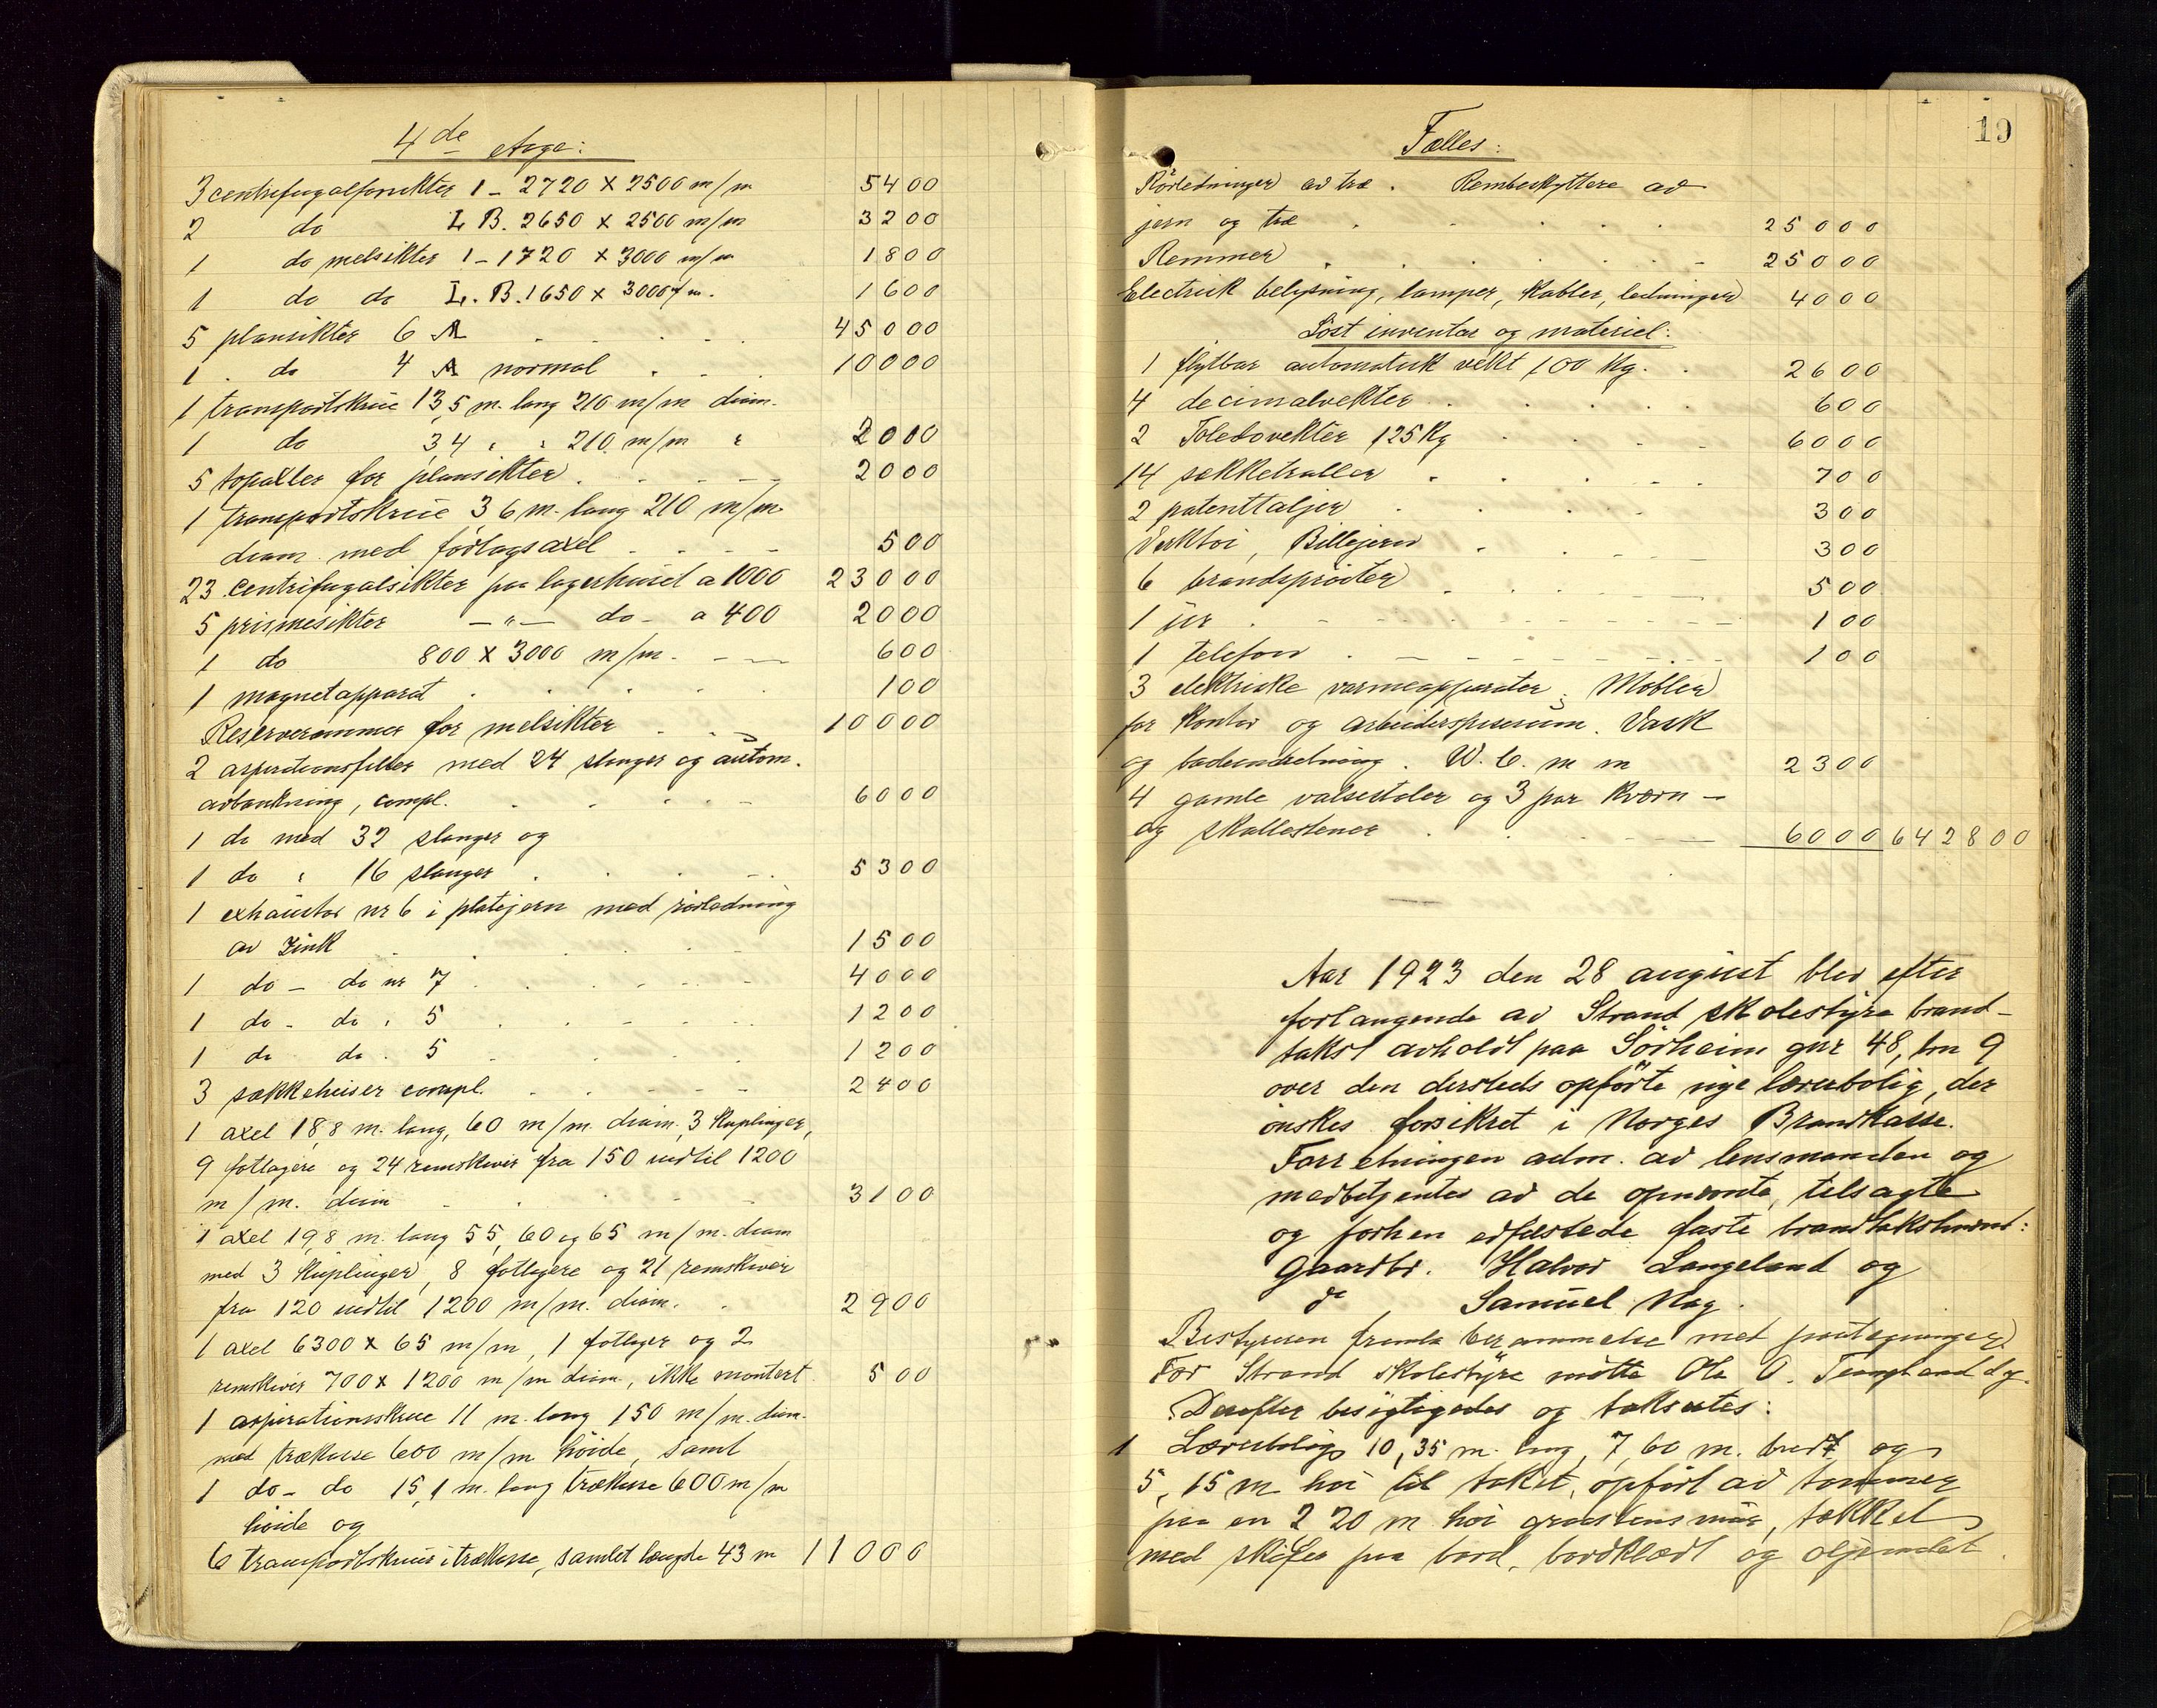 4de etage:
3 centrifugalsnikter 1 - 2720 x 2500 m/m 5400
2 do L. B. 2650 x 2500 m/m 3200
1 do melsikter 1 - 1720 x 3000 m/m 1800
1 do do L. B. 1650 x 3000 m/m. 1600
5 plansikter 6 A 45000
1 do 4 A normal 10000
1 transportskrue 13,5 m. lang 210 m/m diam.
1 do 3,4 " " 210 m/m " 2000
5 topaxler for plansikter 2000
1 transportskrue 36 m. lang 210 m/m
diam. med forlagsaxel 500
23 centrifugalsikter paa lagerhuset a 1000 23000
5 prismesikter - " - do - a 400 2000
1 do 800 x 3000 m/m. 600
1 magnetapparat 100
Reserverammer for melsikter 10000
2 aspirationsfilter med 24 slanger og autom.
avbankning, compl. 6000
1 do med 32 slanger og
1 do " 16 slanger 5300
1 exhaustor nr 6 i platejern med rörledning
av Zink 1500
1 do - do nr 7 4000
1 do - do " 5 1200
1 do do " 5 1200
3 sækkeheiser compl. 2400
1 axel 18,8 m. lang, 60 m/m diam. 3 Kuplinger,
9 fotlagere og 24 remskiver fra 150 indtil 1200
m/m. diam 3100
1 axel 19,8 m. lang 55, 60 og 65 m/m. diam
med 3 Kuplinger, 8 fotlagere og 21 remskiver
fra 120 indtil 1200 m/m. diam. 2900
1 axel 6300 x 65 m/m, 1 fotlager og 2
remskiver 700 x 1200 m/m diam, ikke montert. 500
1 aspirationsskrue 11 m. lang 150 m/m. diam.
med trækasse 600 m/m höide, samt
1 do - do 15,1 m. lang trækasse 600 m/m
höide og
6 transportskruer i trækasse, samlet længde 43 m 11000
19
Fælles:
Rörledninger av træ. Rembeskyttere av
jern og træ 25000
Remmer 25000
Electrisk belysning, lamper, Kabler, ledninger 4000
Löst inventar og materiel:
1 flytbar automatisk vekt 100 Kg. 2600
4 decimalvekter 600
2 Toledovekter 125 Kg 6000
14 sækketraller 700
2 patenttaljer 300
Verktöi, Billejern 300
6 brandspröiter 500
1 ur 100
1 telefon 100
3 elektriske varmeapparater. Möbler
for Kontor og arbeiderspiserum. Vask
og badeindretning. W. C. m m 2300
4 gamle valsestoler og 3 par Kværn -
og skallestener 6000 642800
Aar 1923 den 28 august blev efter
forlangende av Strand skolestyre brand-
takst avholdt paa Sörheim gnr 48, bn 9
over den dersteds opförte nye lærerbolig, der
önskes forsikret i Norges Brandkasse.
Forretningen adm. av lensmanden og
medbetjentes av de opnævnte, tilsagte
og forhen edfæstede faste brandtakstmænd:
Gaardbr. Halvor Langeland og
do Samuel Nag.
Bestyreren fremla berammelse med paategninger.
For Strand skolestyre mötte Ole O. Tungland dy.
Derefter besigtigedes og takseredes:
1 Lærerbolig 10,35 m. lang, 7,60 m. bred og
5,15 m höi til taket, opfört av tömmer
paa en 2 20 m höi graastensmur, tækket
med skifer paa bord, bordklædt og oljemalet.